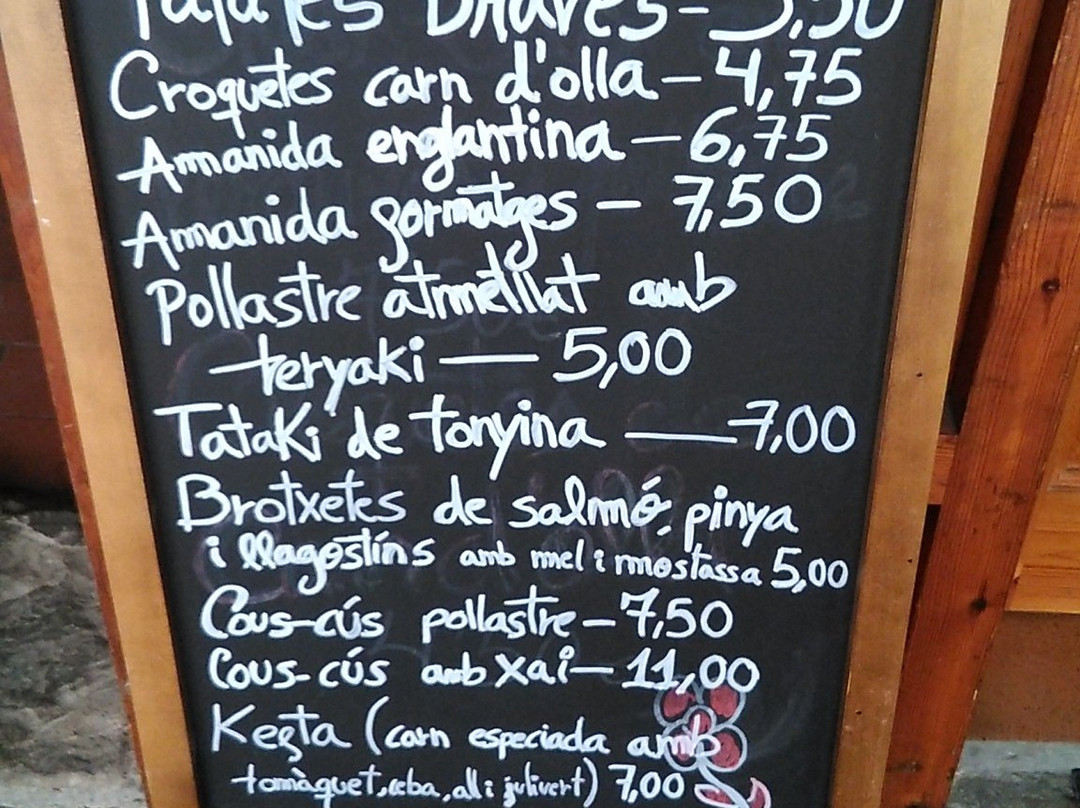 Patates Braves - 5,50
Croquetes carn d'olla - 4,75
Amanida englantina - 6,75
Amanida formatges - 7,50
Pollastre atmetllat amb
teryaki - 5,00
Tataki de tonyina - 7,00
Brotxetes de salmó, pinya
i llagostíns amb mel i mostassa 5,00
Cous-cús pollastre - 7,50
Cous-cús amb xai - 11,00
Kefta (carn especiada amb
tomàquet, ceba, all i julivert) 7,00